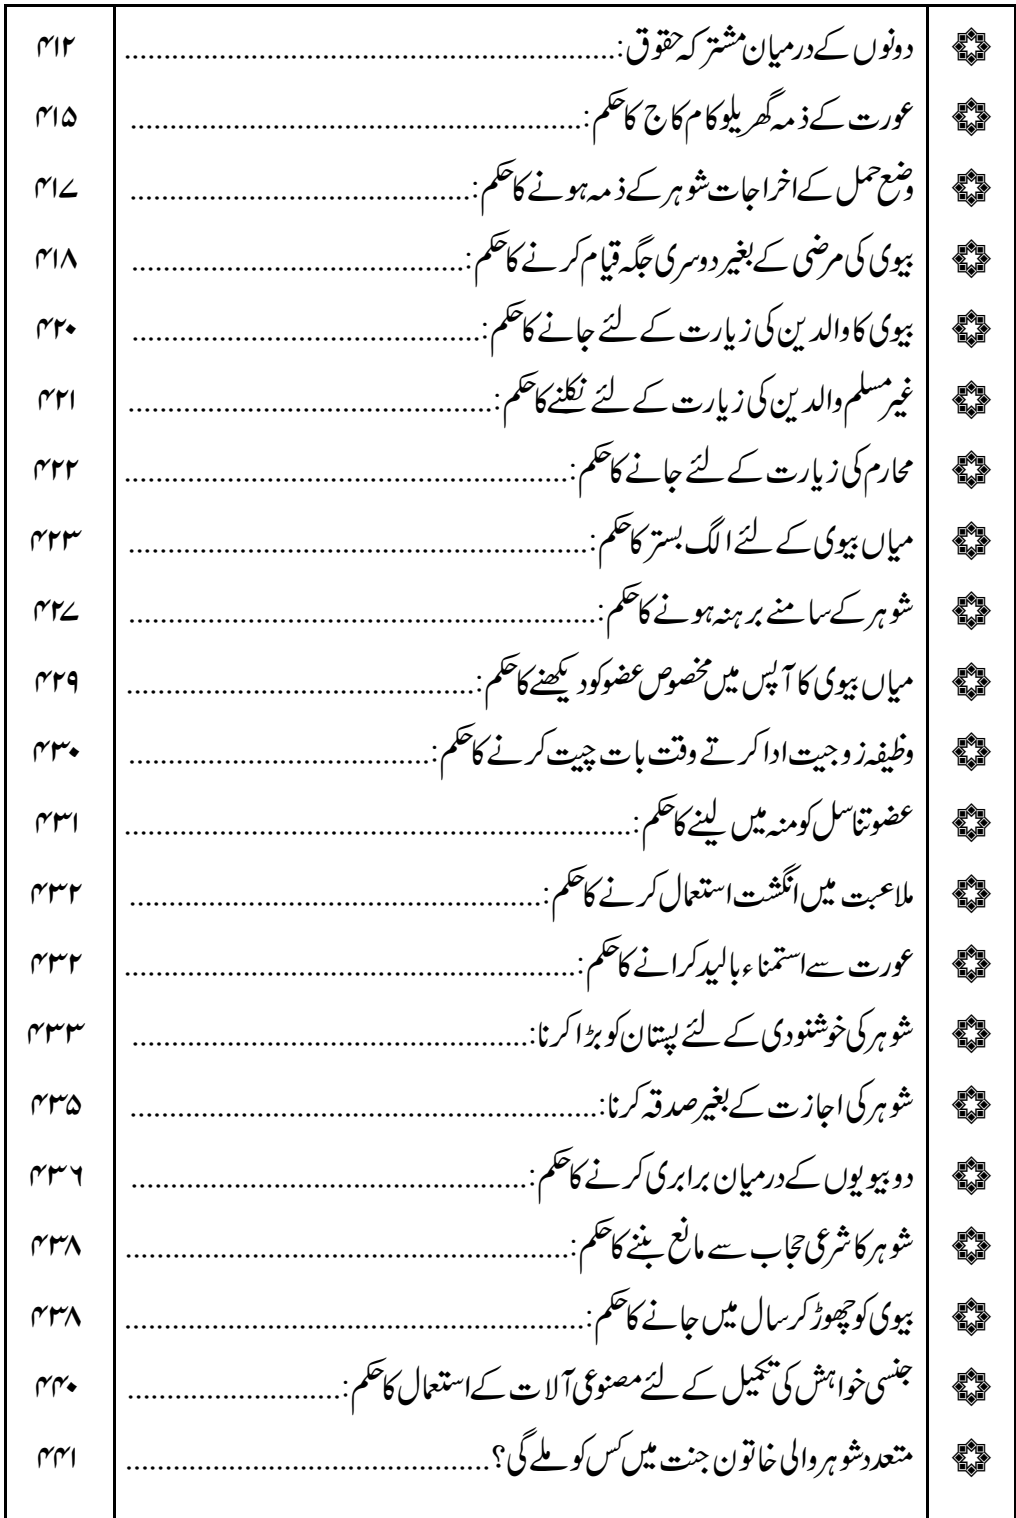 دونوں کے درمیان مشترکہ حقوق:............ ۴۱۲
عورت کے ذمہ گھریلو کام کاج کا حکم:............ ۴۱۵
وضع حمل کے اخراجات شوہر کے ذمہ ہونے کا حکم:............ ۴۱۷
بیوی کی مرضی کے بغیر دوسری جگہ قیام کرنے کا حکم:............ ۴۱۸
بیوی کا والدین کی زیارت کے لئے جانے کا حکم:............ ۴۲۰
غیر مسلم والدین کی زیارت کے لئے نکلنے کا حکم:............ ۴۲۱
محارم کی زیارت کے لئے جانے کا حکم:............ ۴۲۲
میاں بیوی کے لئے الگ بستر کا حکم:............ ۴۲۳
شوہر کے سامنے برہنہ ہونے کا حکم:............ ۴۲۷
میاں بیوی کا آپس میں مخصوص عضو کو دیکھنے کا حکم:............ ۴۲۹
وظیفہ زوجیت ادا کرتے وقت بات چیت کرنے کا حکم:............ ۴۳۰
عضو تناسل کو منہ میں لینے کا حکم:............ ۴۳۱
ملاعبت میں انگشت استعمال کرنے کا حکم:............ ۴۳۲
عورت سے استمناء بالید کرانے کا حکم:............ ۴۳۲
شوہر کی خوشنودی کے لئے پستان کو بڑا کرنا:............ ۴۳۳
شوہر کی اجازت کے بغیر صدقہ کرنا:............ ۴۳۵
دو بیویوں کے درمیان برابری کرنے کا حکم:............ ۴۳۶
شوہر کا شرعی حجاب سے مانع بننے کا حکم:............ ۴۳۸
بیوی کو چھوڑ کر سال میں جانے کا حکم:............ ۴۳۸
جنسی خواہش کی تکمیل کے لئے مصنوعی آلات کے استعمال کا حکم:............ ۴۴۰
متعدد شوہر والی خاتون جنت میں کس کو ملے گی؟............ ۴۴۱